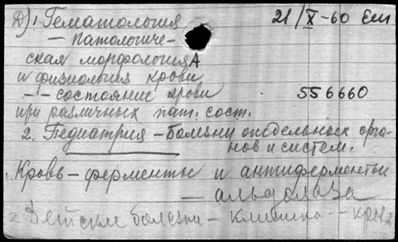 Д) 1. Гематология 21/X-60 Ем
— патологиче-
ская морфология А
и физиология крови
— — состояние крови 556660
при различных пат. сост.
2. Педиатрия — Болезни отдельных орга-
нов и систем.
Кровь — ферменты и антиферменты
— альдолаза
2. Детские болезни — клиника — кровь